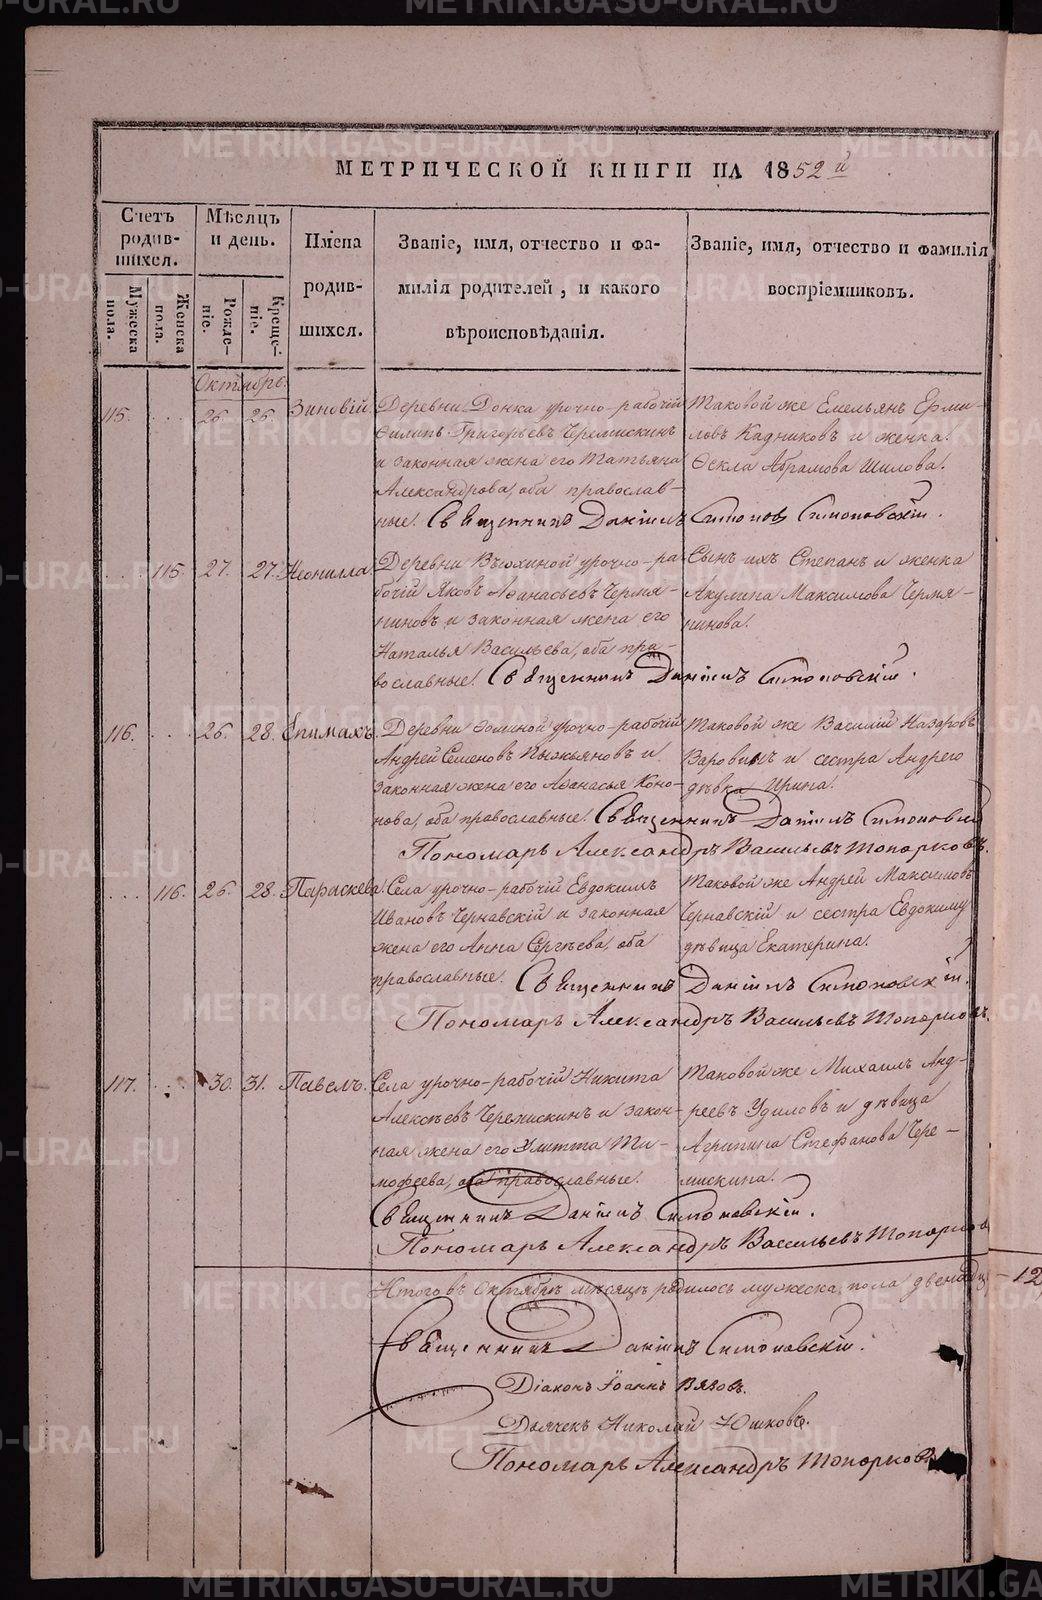 МЕТРИЧЕСКОЙ КНИГИ НА 1852й
Счетъ родив-шихся.
Мужеска пола.
Женска пола.
Мѣсяцъ и день.
Рожде-ніе.
Креще-ніе.
Имена родив-шихся.
Званіе, имя, отчество и фа-
милія родителей, и какого
вѣроисповѣданія.
Званіе, имя, отчество и фамилія
воспріемниковъ.
Октябрь.
115. 26. 26. Зиновій.
Деревни Донка урочно-рабочій
Филипъ Григорьевъ Черемискинъ
и законная жена его Татьяна
Александрова, оба православ-
ные.
Таковой же Емельянъ Ерми-
ловъ Кадниковъ и женка
Ѳекла Абрамова Шилова.
Священникъ Даніилъ Симоновскій.
115. 27. 27. Неонилла
Деревни Вьюхиной урочно-ра-
бочій Яковъ Афанасьевъ Чермя-
ниновъ и законная жена его
Наталья Васильева, оба пра-
вославные.
Сынъ ихъ Степанъ и женка
Акулина Максимова Чермя-
нинова.
Священникъ Даніилъ Симоновскій.
116. 26. 28. Епимахъ.
Деревни Фоминой урочно-рабочій
Андрей Семеновъ Пыжьяновъ и
законная жена его Афанасья Коно-
нова, оба православные.
Таковой же Василій Назаровъ
и сестра Андрея
дѣвка Ирина.
Священникъ Даніилъ Симоновскій
Пономарь Александръ Васильевъ Топорковъ.
116. 26. 28. Параскева
Села урочно-рабочій Евдокимъ
Ивановъ Чернавскій и законная
жена его Анна Сергѣева, оба
православные.
Таковой же Андрей Максимовъ
Чернавскій и сестра Евдокиму
дѣвица Екатерина.
Священникъ Даніилъ Симоновскій.
Пономарь Александръ Васильевъ Топорковъ.
117. 30. 31. Павелъ.
Села урочно-рабочій Никита
Алексѣевъ Черемискинъ и закон-
ная жена его Улитта Ти-
мофеева, оба православные.
Таковой же Михаилъ Анд-
реевъ Удиловъ и дѣвица
Агрипина Стефанова Чере-
мискина.
Священникъ Даніилъ Симоновскій.
Пономарь Александръ Васильевъ Топорковъ
Итого въ Октябрѣ мѣсяцѣ родилось мужеска пола двенадц
12
Священникъ Даніилъ Симоновскій.
Діаконъ Іоаннъ Вязовъ.
Дьячекъ Николай Юшковъ.
Пономарь Александръ Топорковъ
METRIKI.GASO-URAL.RU